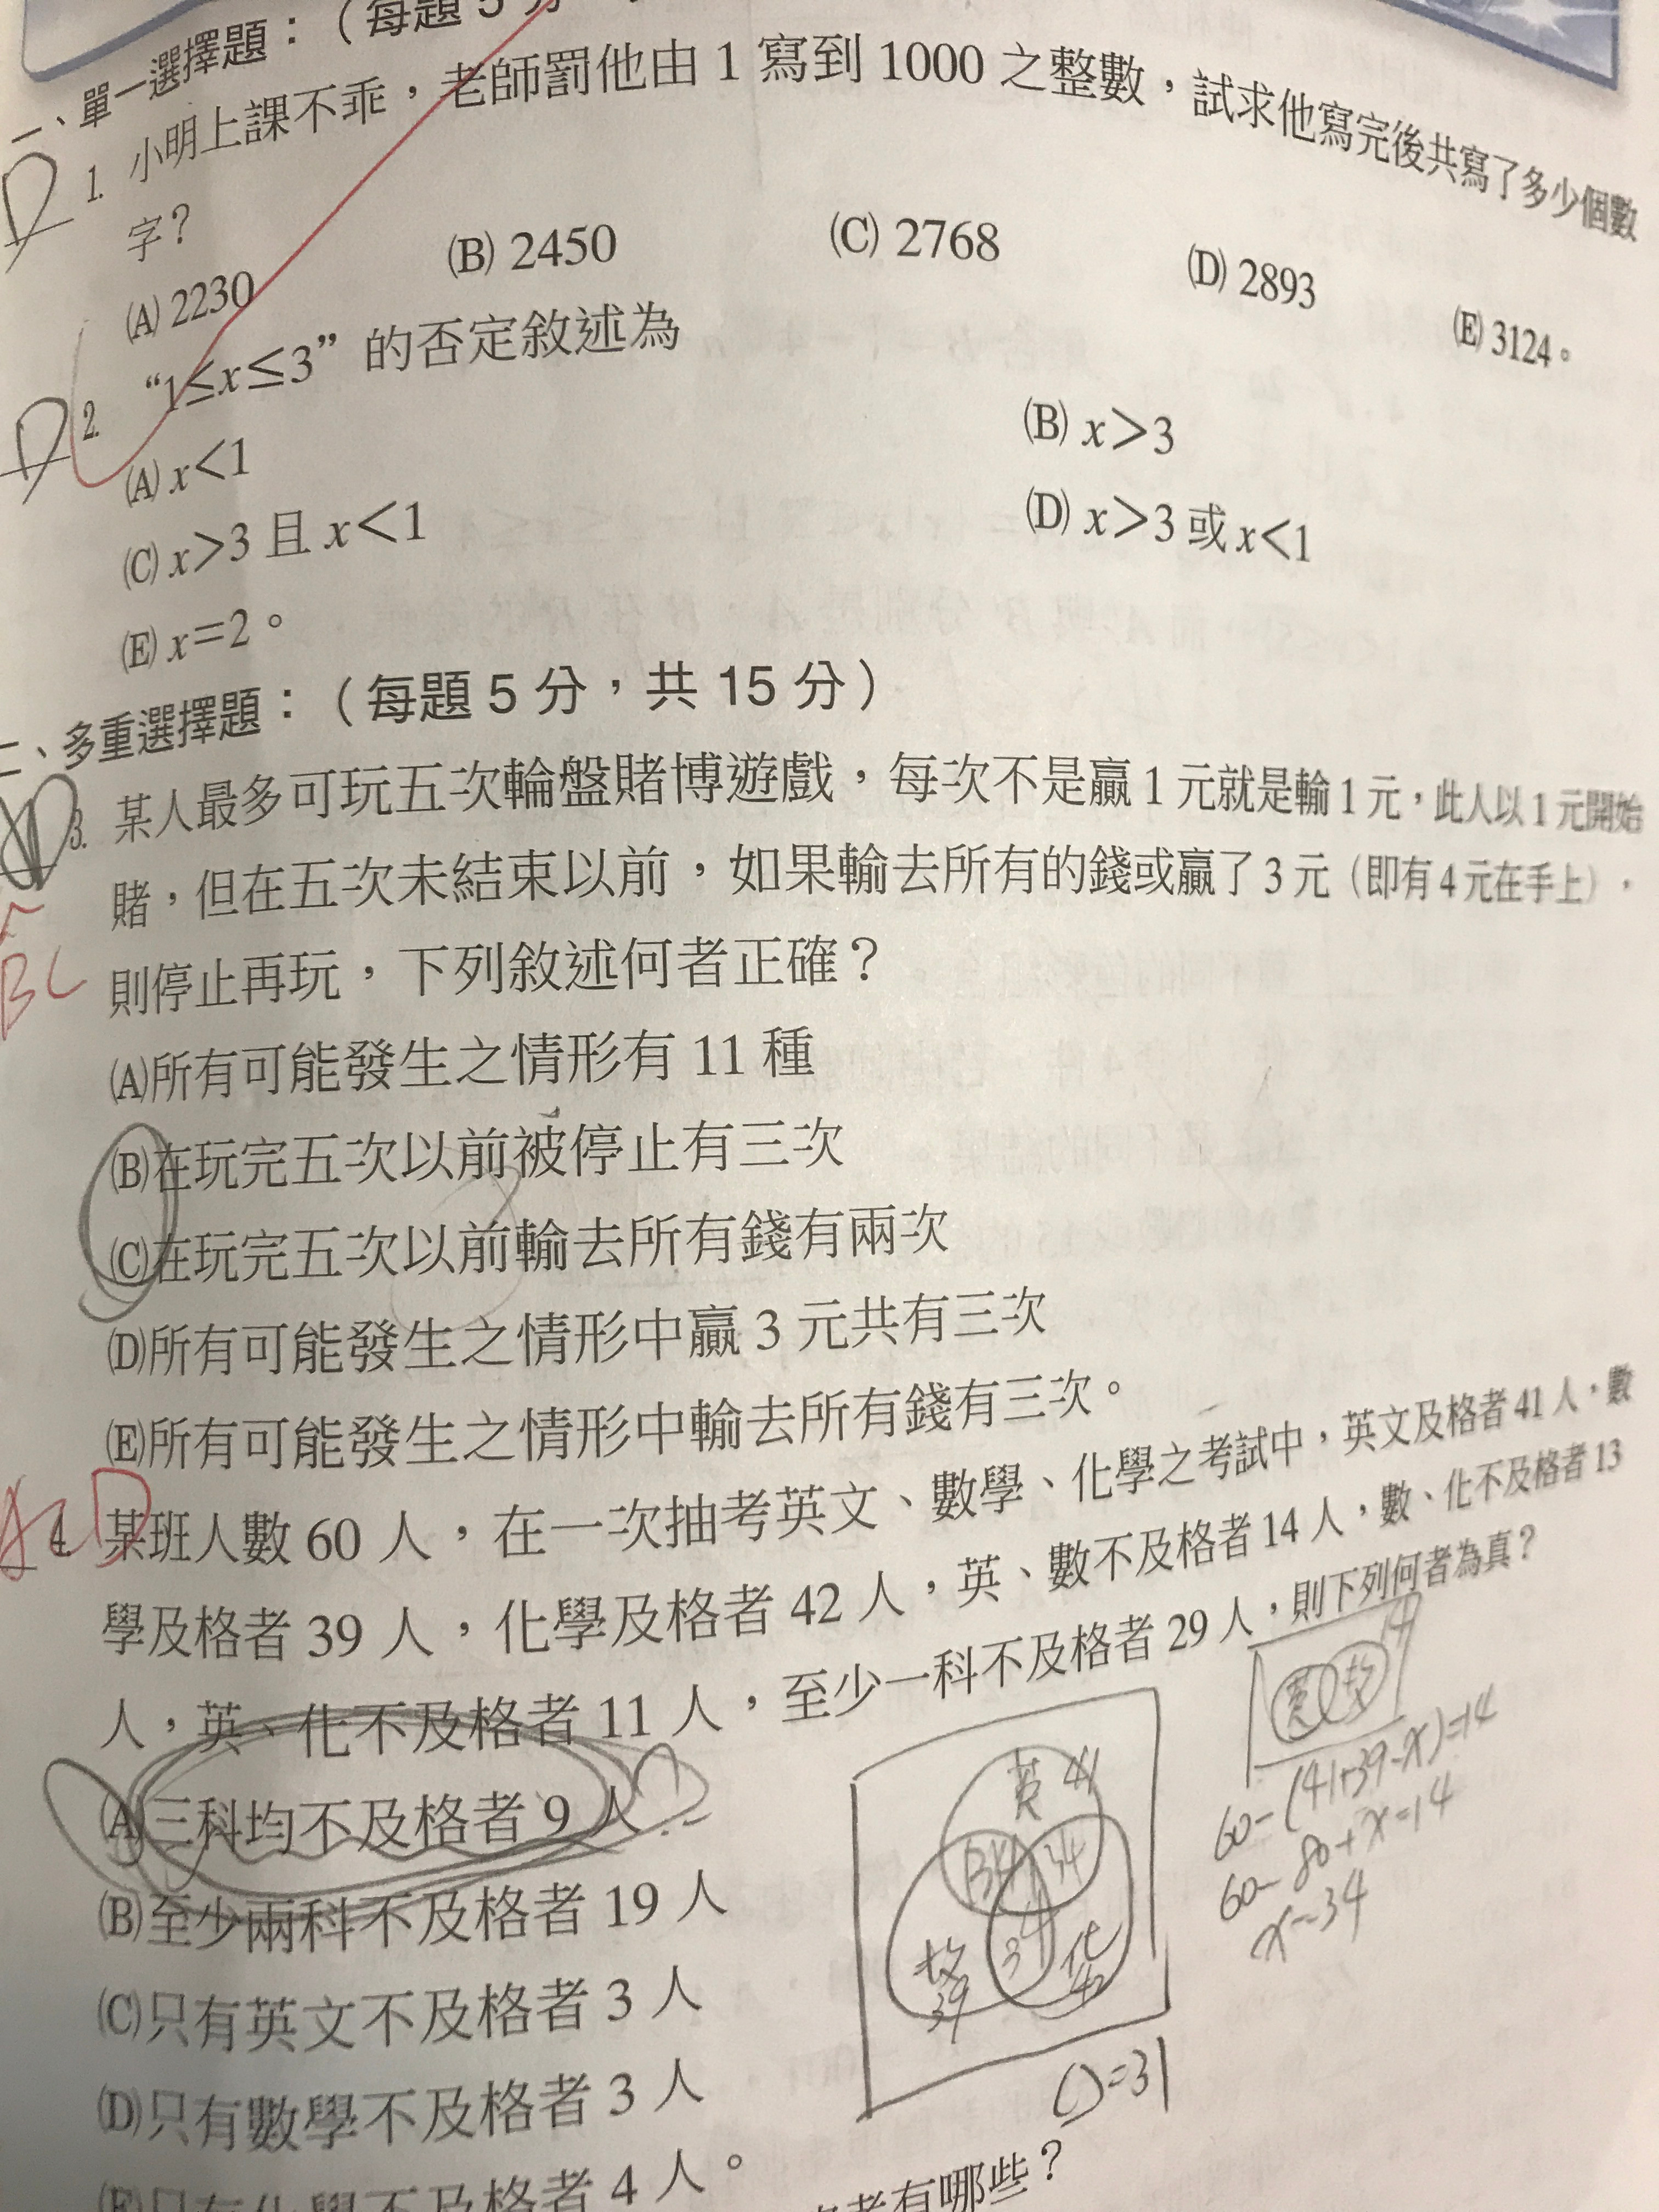 一、單一選擇題：（每題5分
D 1. 小明上課不乖，老師罰他由 1 寫到 1000 之整數，試求他寫完後共寫了多少個數
字？
(A) 2230 (B) 2450 (C) 2768 (D) 2893 (E) 3124。
D 2. “1≤x≤3”的否定敘述為
(A) x<1 (B) x>3
(C) x>3 且 x<1 (D) x>3 或 x<1
(E) x=2。
二、多重選擇題：（每題 5 分，共 15 分）
3. 某人最多可玩五次輪盤賭博遊戲，每次不是贏 1 元就是輸 1 元，此人以 1 元開始
賭，但在五次未結束以前，如果輸去所有的錢或贏了 3 元（即有 4 元在手上），
BC
則停止再玩，下列敘述何者正確？
(A)所有可能發生之情形有 11 種
(B)在玩完五次以前被停止有三次
(C)在玩完五次以前輸去所有錢有兩次
(D)所有可能發生之情形中贏 3 元共有三次
(E)所有可能發生之情形中輸去所有錢有三次。
4. 某班人數 60 人，在一次抽考英文、數學、化學之考試中，英文及格者 41 人，數
學及格者 39 人，化學及格者 42 人，英、數不及格者 14 人，數、化不及格者 13
人，英、化不及格者 11 人，至少一科不及格者 29 人，則下列何者為真？
(A)三科均不及格者 9 人
(B)至少兩科不及格者 19 人
(C)只有英文不及格者 3 人
(D)只有數學不及格者 3 人
(E)只有化學不及格者 4 人。
英 41
34 34
34
數 39
化 42
14
英 數
60-(41+39-x)=14
60-80+x=14
x=34
=31
者有哪些？